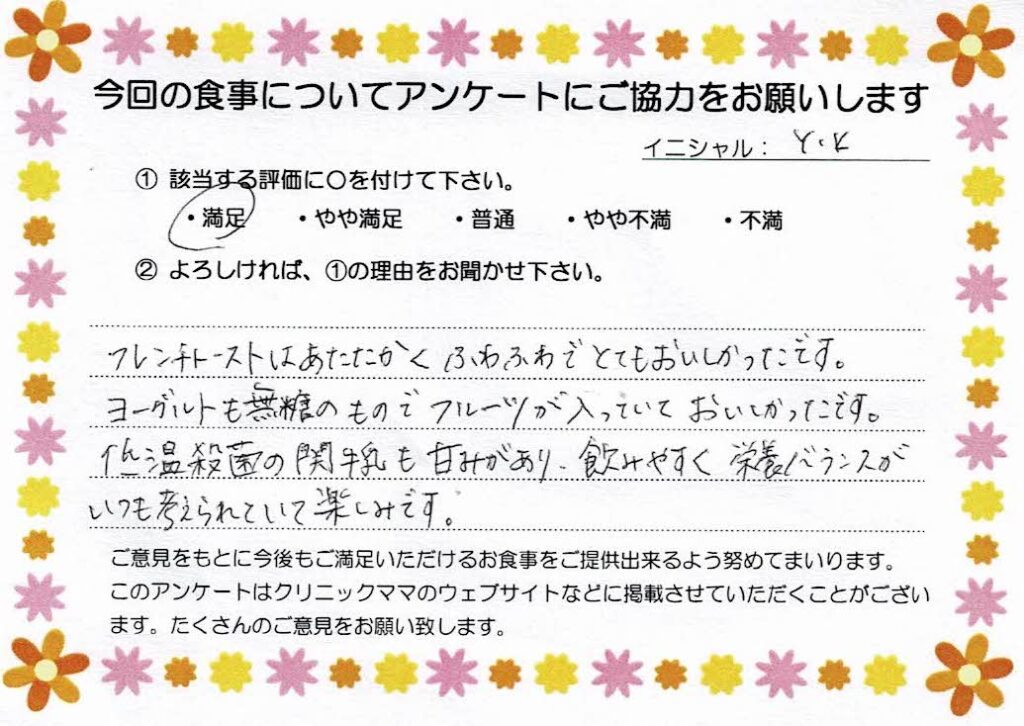 今回の食事についてアンケートにご協力をお願いします
イニシャル： Y・K
① 該当する評価に〇を付けて下さい。
・満足 ・やや満足 ・普通 ・やや不満 ・不満
② よろしければ、①の理由をお聞かせ下さい。
フレンチトーストはあたたかく ふわふわで とてもおいしかったです。
ヨーグルトも無糖のもので フルーツが入っていて おいしかったです。
低温殺菌の関牛乳も甘みがあり、飲みやすく 栄養バランスが
いつも考えられていて楽しみです。
ご意見をもとに今後もご満足いただけるお食事をご提供出来るよう努めてまいります。
このアンケートはクリニックママのウェブサイトなどに掲載させていただくことがござい
ます。たくさんのご意見をお願い致します。